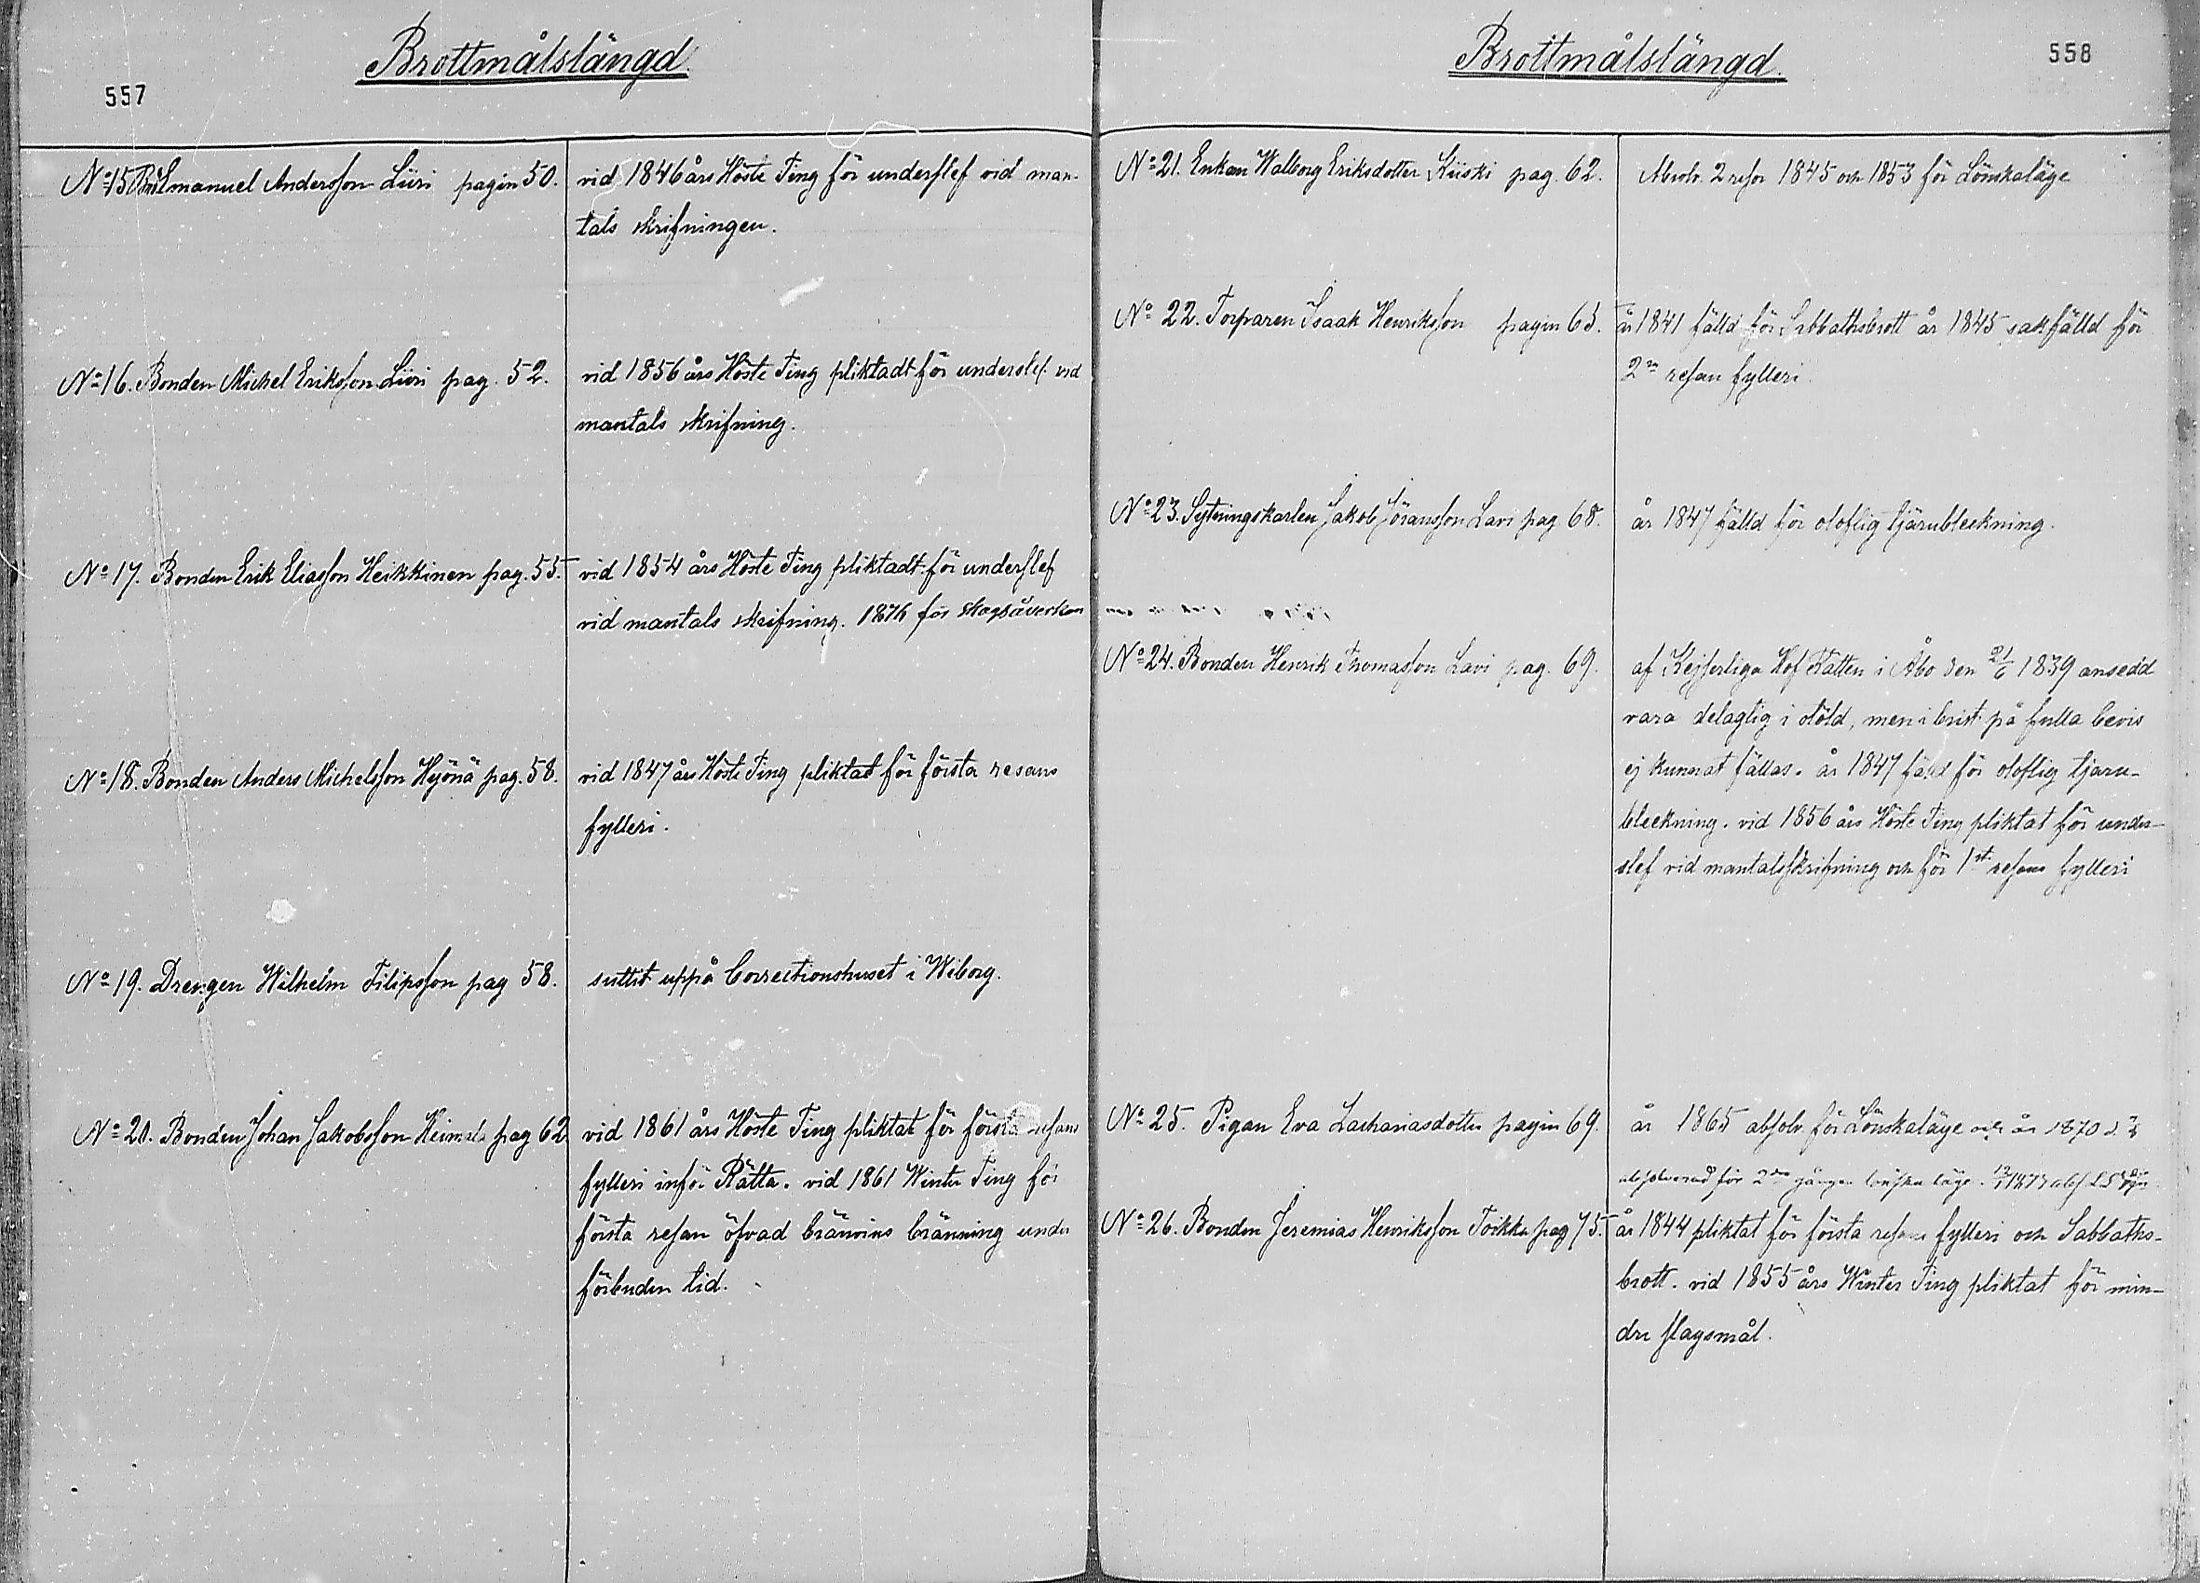 Brottmålslängd.
557
No 15 Bond Emanuel Andersson Liiri pagin 50.
vid 1846 års Höste Ting för underslef vid man-
tals skrifningen.
No 16. Bonden Michel Eriksson Liiri pag. 52.
vid 1856 års Höste Ting pliktadt för underslef vid
mantals skrifning.
No 17. Bonden Erik Eliasson Heikkinen pag. 55.
vid 1854 års Höste Ting pliktadt för underslef
vid mantals skrifning. 1876 för skogsåverkan
No 18. Bonden Anders Michelsson Hyönä pag. 58.
vid 1847 års Höste Ting pliktat för första resans
fylleri.
No 19. Drengen Wilhelm Filipsson pag 58.
suttit uppå Correctionshuset i Wiborg.
No 20. Bonden Johan Jakobsson pag 62
vid 1861 års Höste Ting pliktat för första resans
fylleri inför Rätta. vid 1861 Winter Ting för
första resan öfvad brännvins bränning under
förbuden tid.
Brottmålslängd.
558
No 21. Enkan Walborg Eriksdotter Kiiski pag. 62.
Absolv. 2 resor 1845 och 1853 för Lönskaläge
No 22. Torparen Isaak Henriksson pagin 63.
år 1841 fälld för Sabbathsbrott år 1845 sakfälld för
2n resan fylleri.
No 23. Sytningskarlen Jakob Jöransson Lavi pag 68.
år 1847 fälld för oloflig tjärubleckning.
No 24. Bonden Henrik Thomasson Lavi pag. 69.
af Kejserliga Hof Rätten i Åbo den 21/6 1839 ansedd
vara delagtig i stöld, men i brist på fulla bevis
ej kunnat fällas. år 1847 fäld för oloflig tjäru-
bleckning. vid 1856 års Höste Ting pliktat för under-
slef vid mantalsskrifning och för 1st resans fylleri
No 25. Pigan Eva Zachariasdotter pagin 69.
år 1865 absolv. för Lönskaläge och år 1870 d.
absolverad för 2dra gången lönska läge.
No 26. Bonden Jeremias Henriksson Toikka pag 75.
år 1844 pliktat för första resans fylleri och Sabbaths-
brott. vid 1855 års Winter Ting pliktat för min-
dre slagsmål.